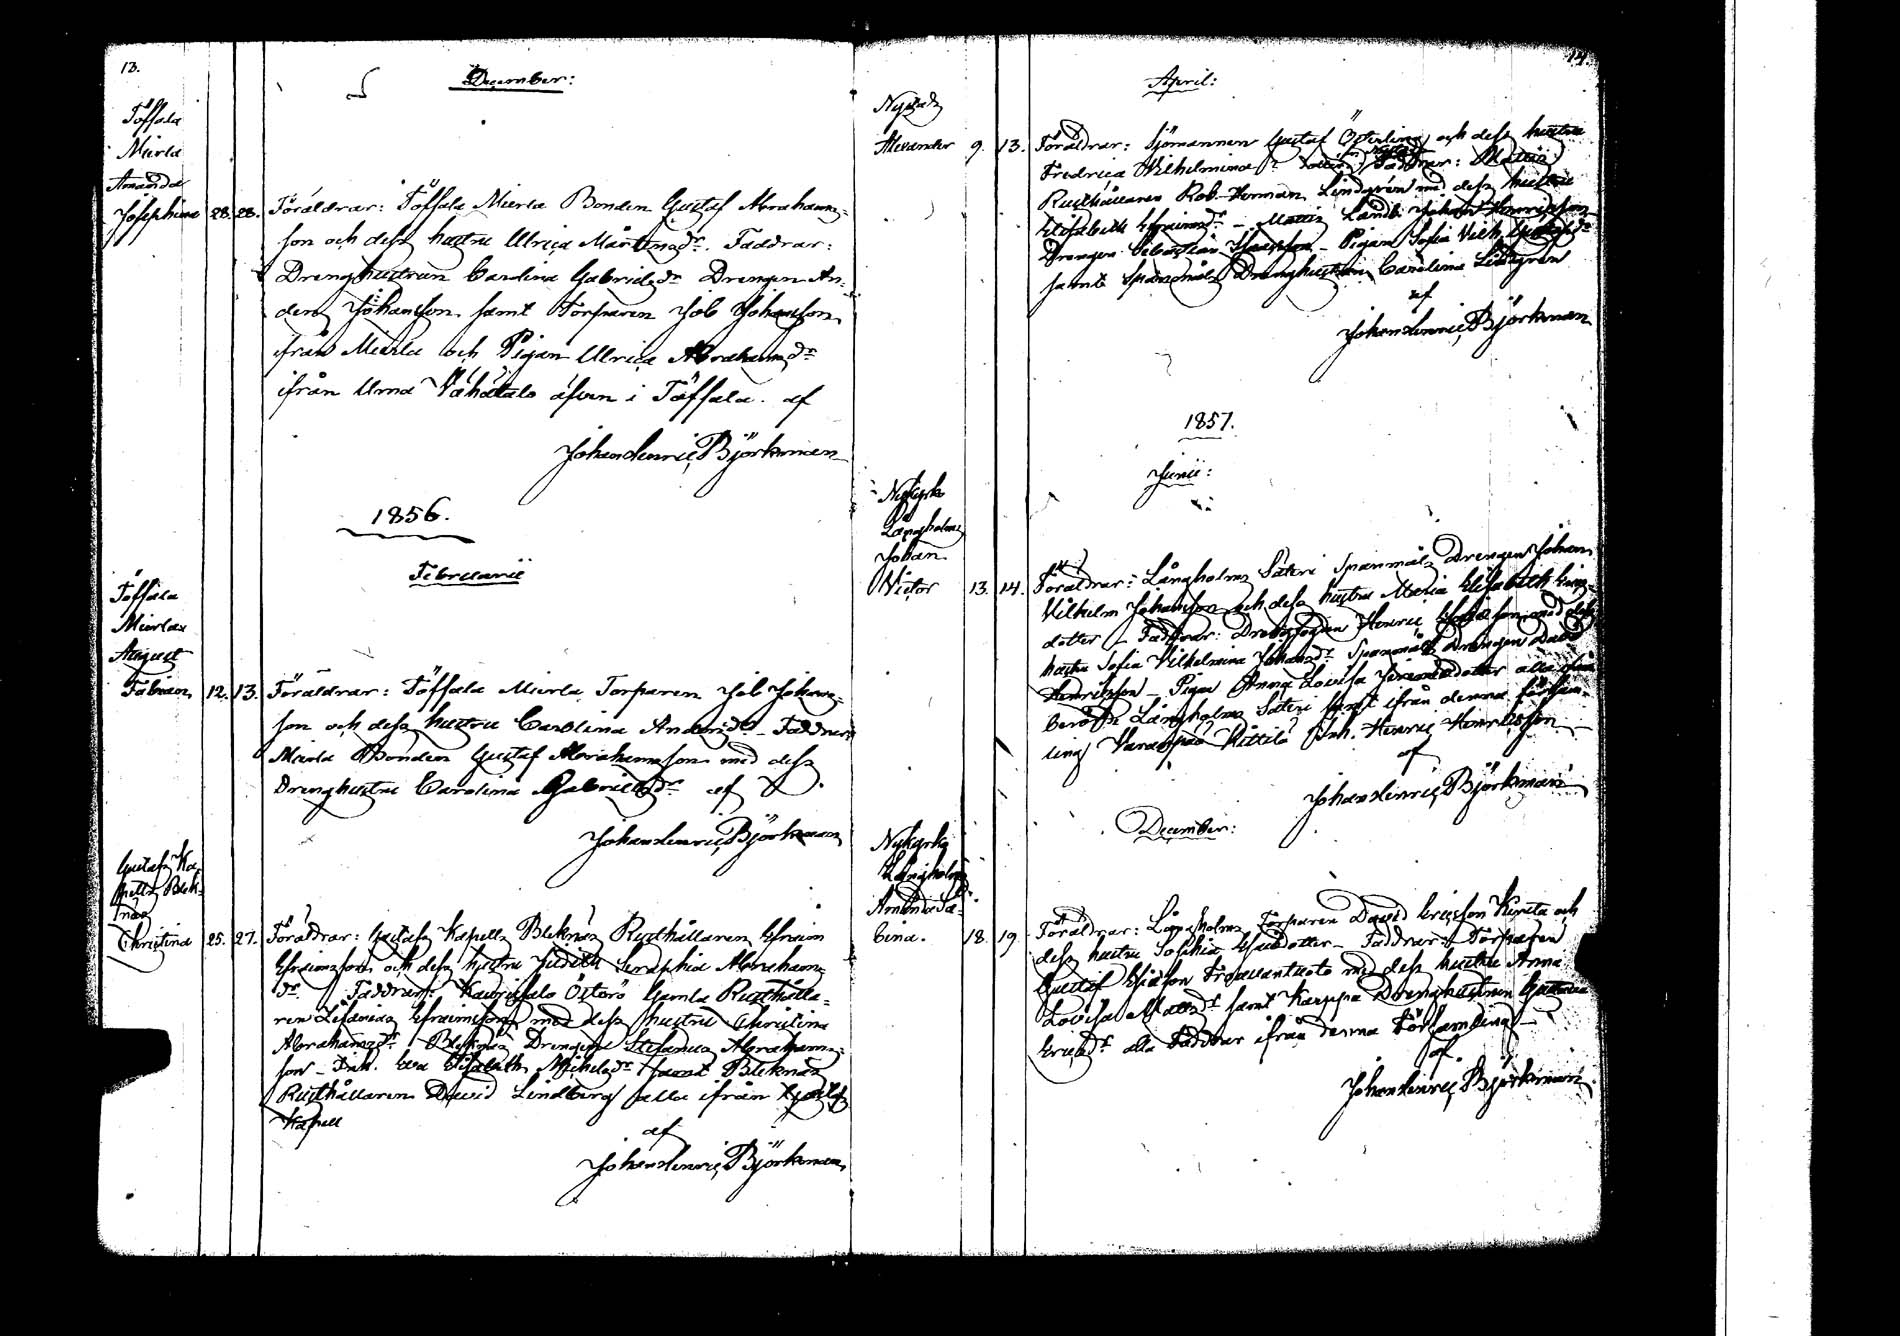 13.
December:
Töffala
Mierla
Amanda
Josephina 28. 28. Föräldrar: Töffala Mierla Bonden Gustaf Abrahams-
son och dess hustru Ulrica Mårtensdr. Faddrar:
Drenghustrun Carolina Gabrielsdr Drengen An-
ders Johansson samt Torparen Job Johansson
från Mierla och Pigan Ulrica Abrahamsdr
ifrån Vähätalo äfven i Töffala. af
Johan Henric Björkman
1856.
Februarii
Töffala
Mierla
August
Fabian 12. 13. Föräldrar: Töffala Mierla Torparen Job Johans-
son och dess hustru Carolina Andersdr - Faddrar:
Mierla Bonden Gustaf Abrahamsson med dess
Drenghustru Carolina Gabrielsdr af
Johan Henric Björkman
Gustafs Ka-
pells Blek-
näs
Christina 25. 27. Föräldrar: Gustafs Kapells Bleknäs Rusthållaren Efraim
Efraimsson och dess hustru Judith Seraphia Abrahams-
dr. Faddrar: Österö Gamla Rusthålla-
ren Efraimsson med dess hustru Christina
Abrahamsdr - Bleknäs Drengen Abrahams-
son - Inh. Eva Elisabeth Michelsdr samt Bleknäs
Rusthållaren David Lindberg alla ifrån Gustafs
Kapell
af
Johan Henric Björkman
14.
April:
Nystads
Alexander 9. 13. Föräldrar: Sjömannen Gustaf Österling och dess hustru
Fredrica Vilhelmina Faddrar:
Rusthållaren Rob. Herman Lindgrén med dess hustru
Elisabeth Efraimsdr - Landb. Johan Henricsson
Drengen - Pigan Sofia Vilh.
samt Spanmåls Drenghustrun Carolina Lindgrén
af
Johan Henric Björkman
1857.
Junii:
Nykyrko
Långholms
Johan
Victor 13. 14. Föräldrar: Långholms Säteri Spanmåls Drengen Johan
Vilhelm Johansson och dess hustru Maria Elisabeth
dotter - Faddrar: Drengfogden Henric med dess
hustru Sofia Vilhelmina Johansdr Spanmåls Drengen David
Henriksson - Pigan Anna Lovisa Jeremiedotter alla ifrån
berörde Långholms Säteri samt ifrån denna försam-
ling Inh. Henric Henricsson
af
Johan Henric Björkman
December:
Nykyrko
Långholms
Amanda Sa-
bina. 18. 19. Föräldrar: Långholms Torparen David Ericsson och
dess hustru Sophia - Faddrar: Torparen
Gustaf med dess hustru Anna
Lovisa Mattsdr samt Karppa Drenghustrun
Ericsdr alla Faddrar ifrån denna Församling -
af
Johan Henric Björkman